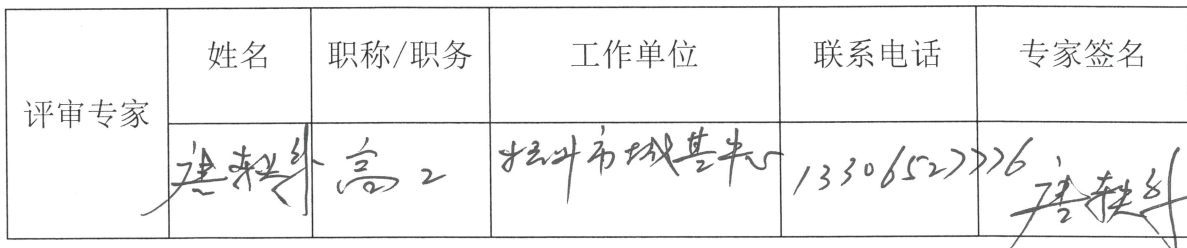 评审专家 姓名 职称/职务 工作单位 联系电话 专家签名
唐轶 高工 市城基中心 13306527776 唐轶